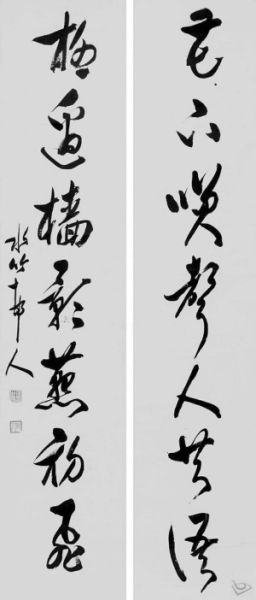 花下咲聲人共語
柳邊檣影燕初飛
水竹邨人